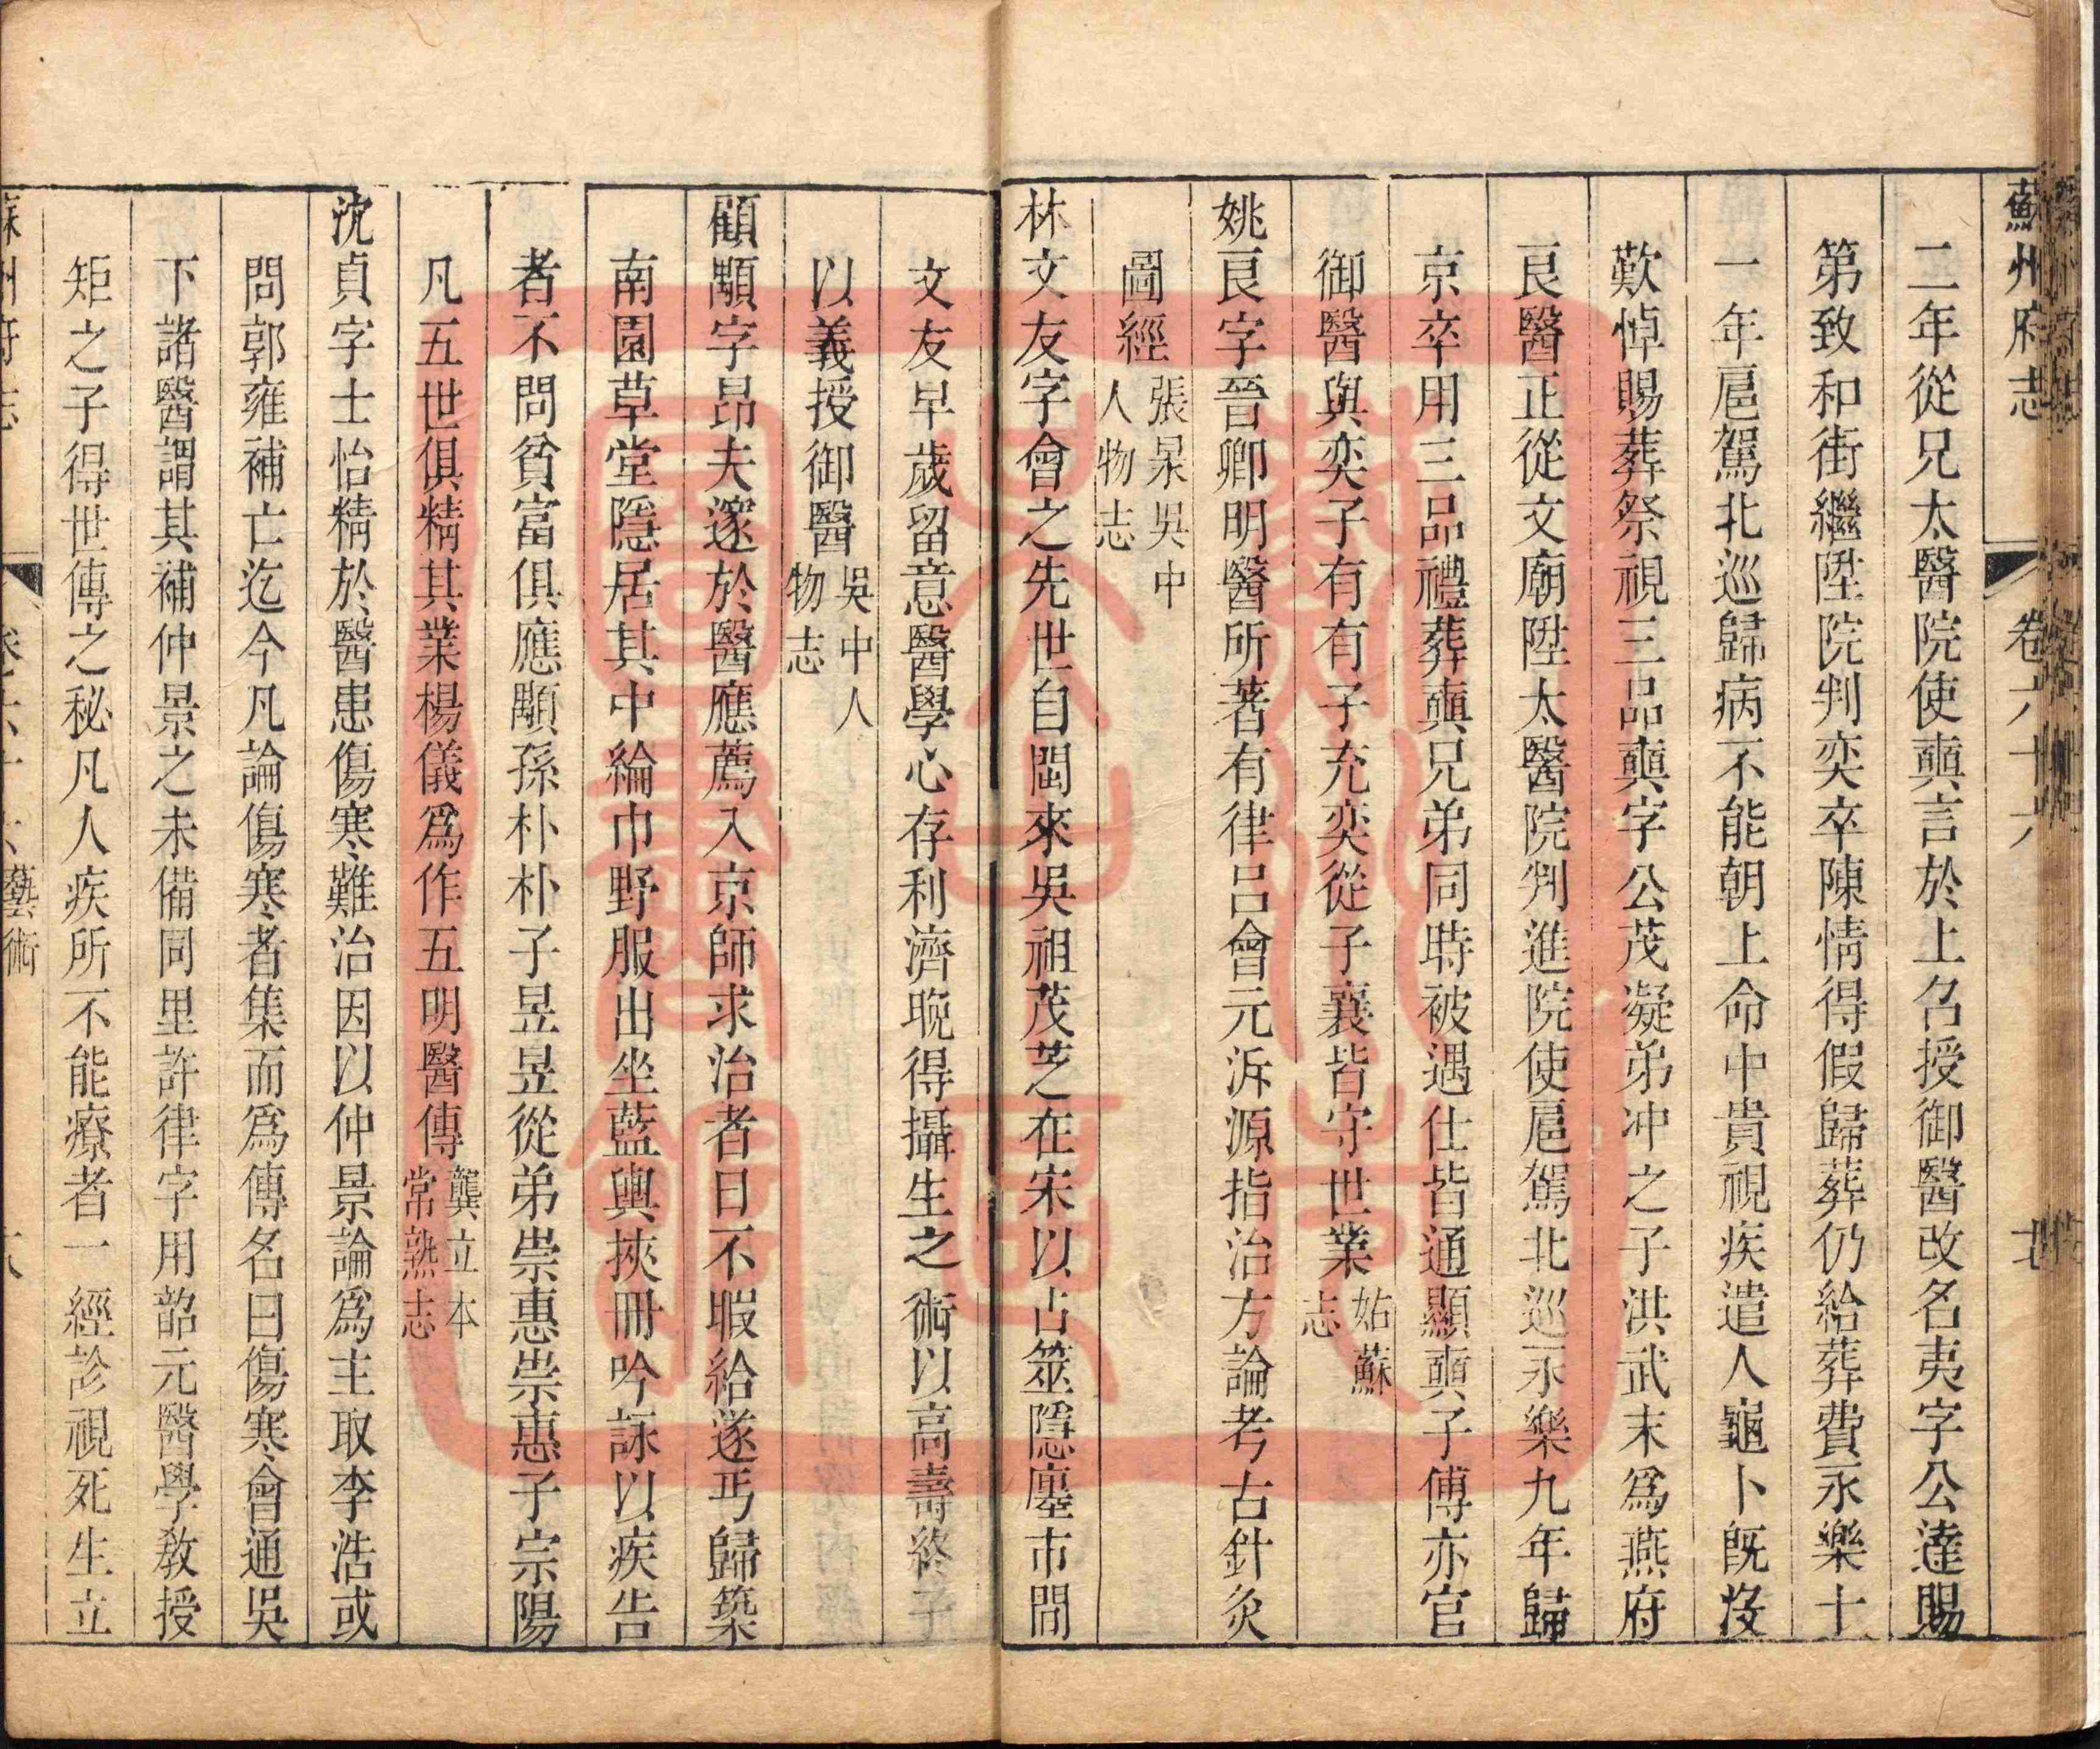 蘇州府志 卷六十六
二年從兄太醫院使奭言於上召授御醫改名夷字公達賜
第致和街繼陞院判奕卒陳情得假歸葬仍給葬費永樂十
一年扈駕北巡歸病不能朝上命中貴視疾遣人龜卜旣沒
歎悼賜葬祭視三品奭字公茂凝弟冲之子洪武末爲燕府
良醫正從文廟陞太醫院判進院使扈駕北巡永樂九年歸
京卒用三品禮葬奭兄弟同時被遇仕皆通顯奭子傅亦官
御醫與奕子有有子充奕從子襄皆守世業姑蘇志
姚良字晉卿明醫所著有律呂會元泝源指治方論考古針灸
圖經張杲吳中人物志
林文友字會之先世自閩來吳祖茂芝在宋以占筮隱廛市間
文友早歲留意醫學心存利濟晚得攝生之術以高壽終子
以義授御醫吳中人物志
顧顒字昂夫邃於醫應薦入京師求治者日不暇給遂丐歸築
南園草堂隱居其中綸巾野服出坐藍輿挾冊吟詠以疾告
者不問貧富俱應顒孫朴朴子昱昱從弟崇惠崇惠子宗陽
凡五世俱精其業楊儀爲作五明醫傳龔立本常熟志
沈貞字士怡精於醫患傷寒難治因以仲景論爲主取李浩或
問郭雍補亡迄今凡論傷寒者集而爲傳名曰傷寒會通吳
下諸醫謂其補仲景之未備同里許律字用韶元醫學敎授
矩之子得世傳之秘凡人疾所不能療者一經診視死生立
藝術